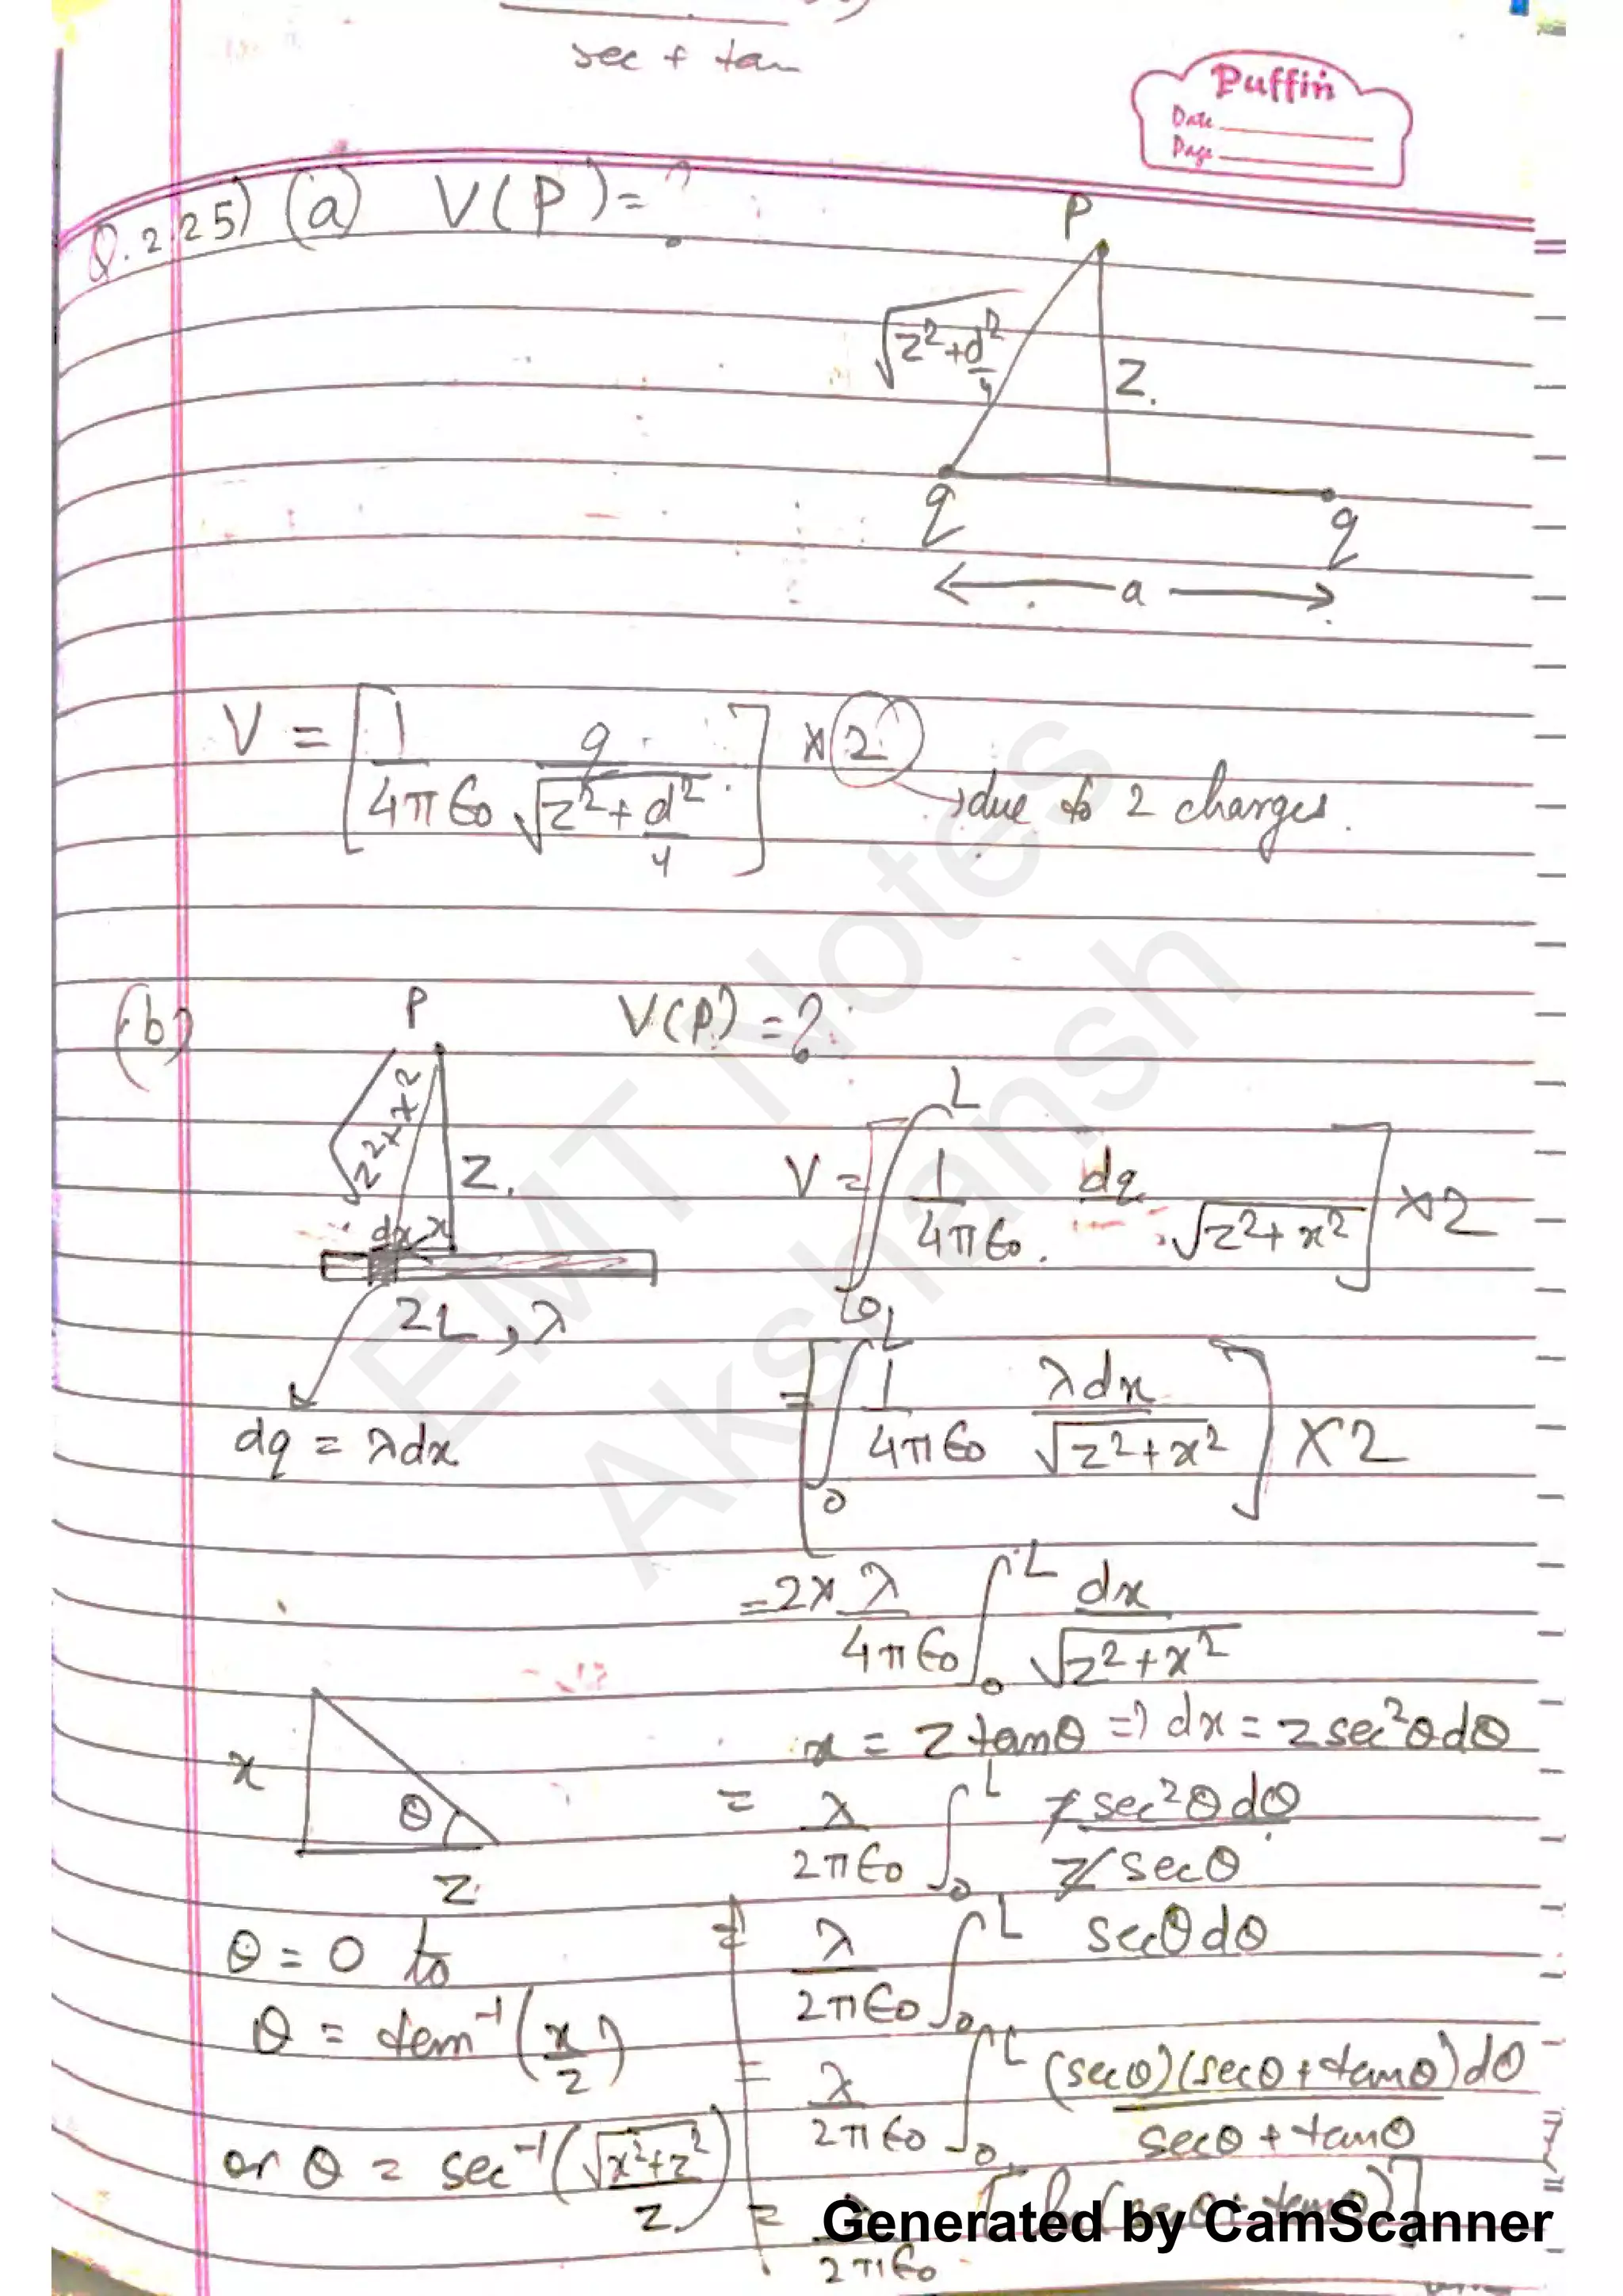 sec + tan
Puffin
Date
Page
Q.2.25) (a) V(P)=?
P
√(z²+d²/4)
z.
q
q
a
V = [1/4πϵ₀ q/√(z²+d²/4)] × 2 → due to 2 charges.
(b)
P
V(P) = ?
√z²+x²
z.
dx x
2L, λ
dq = λdx
V = [∫₀ᴸ 1/4πϵ₀. dq/√(z²+x²)] ×2
= [∫₀ᴸ 1/4πϵ₀ λdx/√(z²+x²)] ×2
= 2× λ/4πϵ₀ ∫₀ᴸ dx/√(z²+x²)
x = z tanθ ⇒ dx = z sec²θdθ
x
θ
z
= λ/2πϵ₀ ∫₀ᴸ z sec²θdθ/z secθ
θ = 0 to
θ = tan⁻¹(x/z)
or θ = sec⁻¹(√(x²+z²)/z)
= λ/2πϵ₀ ∫₀ᴸ secθdθ
= λ/2πϵ₀ ∫₀ᴸ (secθ)(secθ+tanθ)dθ/secθ+tanθ
= λ/2πϵ₀ [ln(secθ+tanθ)]
EMT Notes
Akshansh
Generated by CamScanner